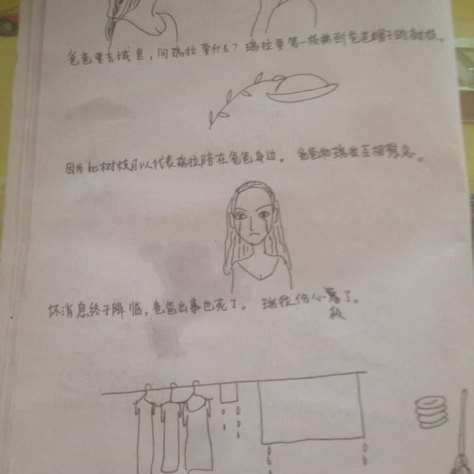 爸爸要去城里,问瑞拉要什么?瑞拉要第一根碰到爸爸帽子的树枝。
因为此树枝可以代表瑞拉陪在爸爸身边。爸爸和瑞拉互相
坏消息终于降临,爸爸出事也死了。瑞拉伤心